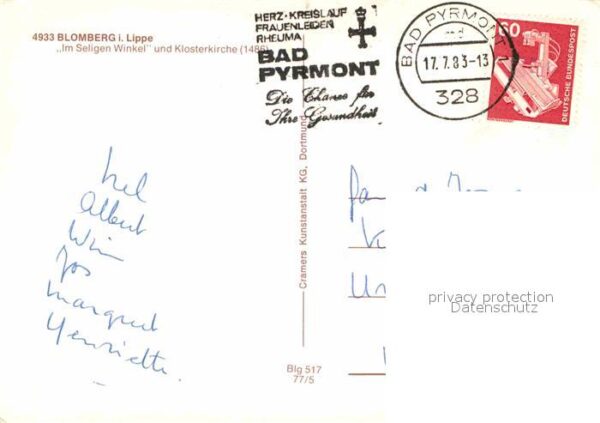 4933 BLOMBERG i. Lippe
„Im Seligen Winkel" und Klosterkirche (1486)
HERZ-KREISLAUF
FRAUENLEIDEN
RHEUMA
BAD
PYRMONT
Die Chance für
Ihre Gesundheit
BAD PYRMONT 1
md
17.7.83-13
328
60
DEUTSCHE BUNDESPOST
Albert
Wim
Jos
Margreet
Henriette.
Cramers Kunstanstalt KG, Dortmund
Blg 517
77/5
privacy protection
Datenschutz